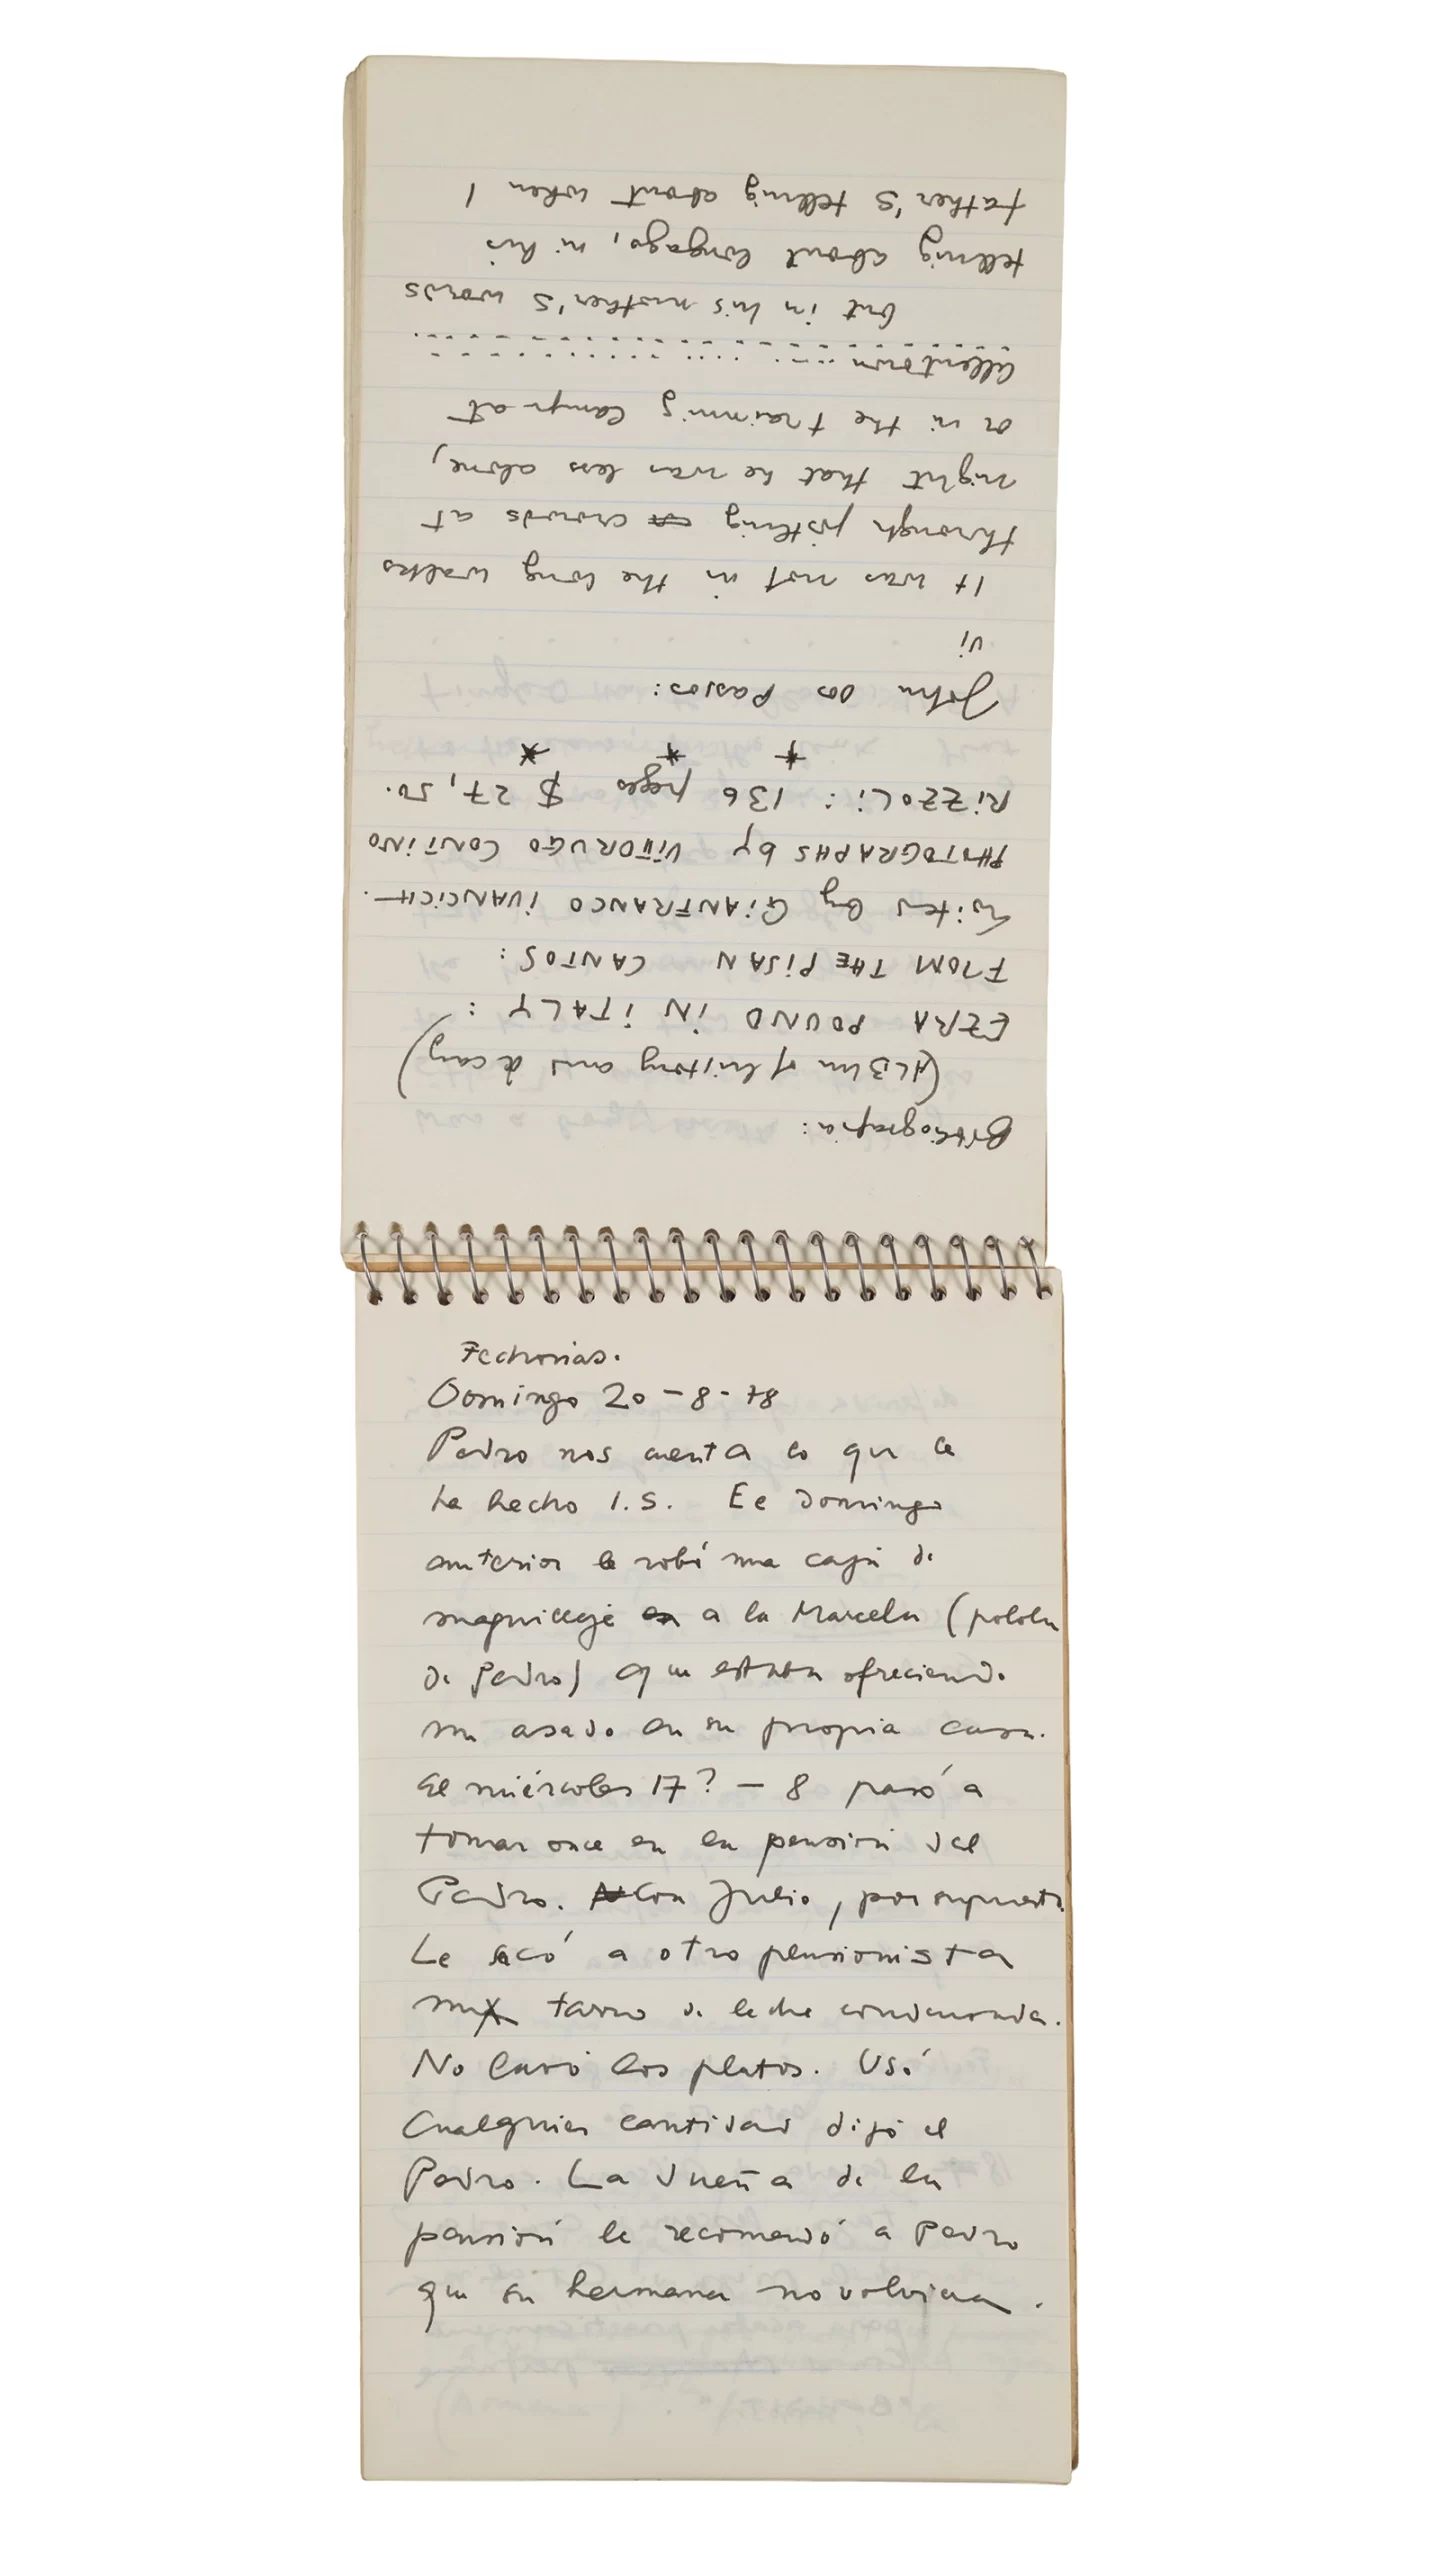 Bibliografia:
(ALBUM of history and decay)
EZRA POUND IN ITALY:
FROM THE PISAN CANTOS:
Edited by GIANFRANCO IVANCICH.
PHOTOGRAPHS by VITTORUGO CONTINO
RIZZOLI: 136 pages $ 27,50.
* * *
John Dos Passos:
vi
It was not in the long walks
through jostling crowds at
night that he was less alone,
or in the training camp at
allentown
but in his mother's words
telling about longago, in his
father's telling about when I
Fechorias.
Domingo 20-8-78
Pedro nos cuenta lo que le
ha hecho I.S. El Domingo
anterior le robó una caja de
maquillaje a la Marcela (polola
de Pedro) que estaba ofreciendo
un asado en su propia casa.
El miércoles 17? - 8 pasó a
tomar once en la pensión del
Pedro. Con Julio, por supuesto.
Le sacó a otro pensionista
un tarro de leche condensada.
No lavó los platos. Usó
Cualquier cantidad dijo el
Pedro. La dueña de la
pensión le recomendó a Pedro
que su hermana no volviera.